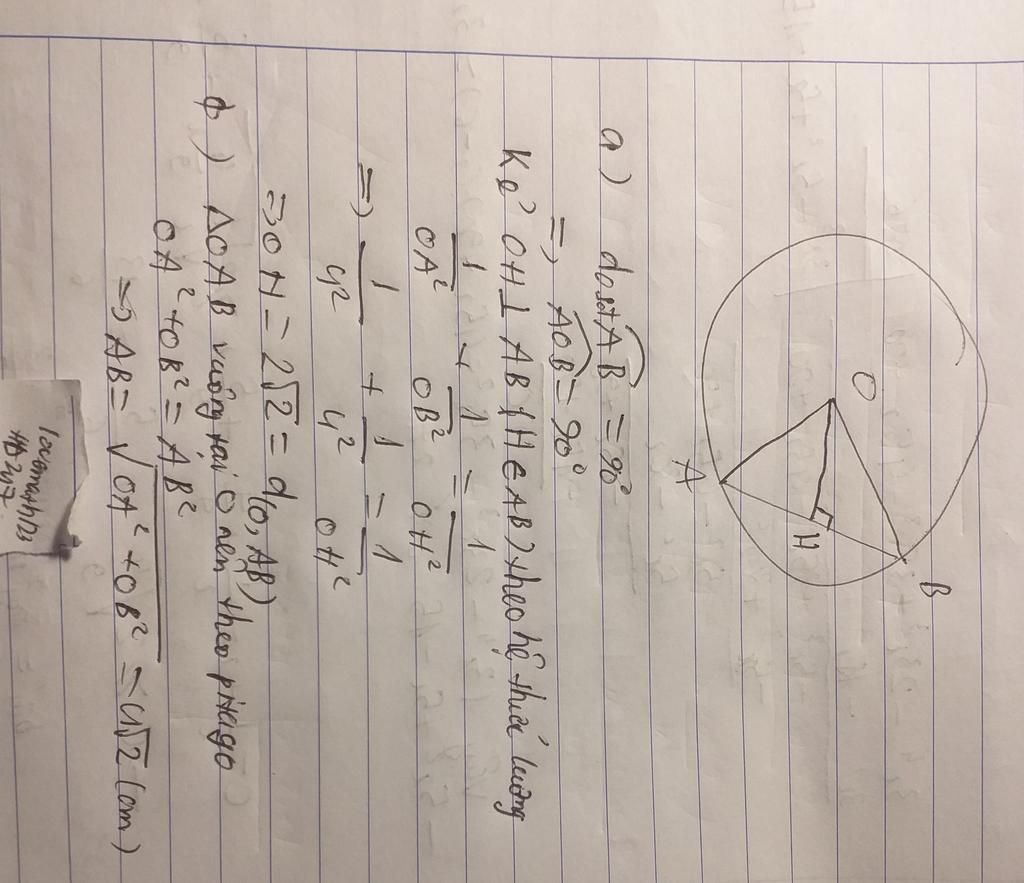 O
B
A
H
a) do sđ AB = 90°
=> AOB = 90°
Kẻ OH ⊥ AB (H ∈ AB) theo hệ thức lượng
1/OA² + 1/OB² = 1/OH²
=> 1/4² + 1/4² = 1/OH²
=> OH = 2√2 = d(O, AB)
b) ΔOAB vuông tại O nên theo pitago
OA² + OB² = AB²
=> AB = √OA² + OB² = 4√2 (cm)